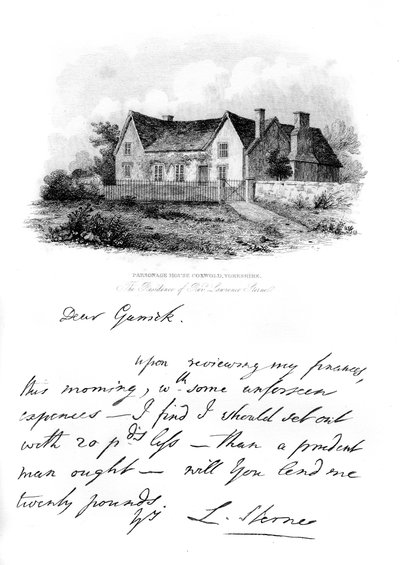 PARSONAGE HOUSE COXWOLD, YORKSHIRE.
The Residence of Revd Lawrence Sterne
Dear Garrick.
upon reviewing my finances,
this morning, wth some unforseen
expences — I find I should set out
with 20 pds less — than a prudent
man ought — will You lend me
twenty pounds.
Yrs L. Sterne